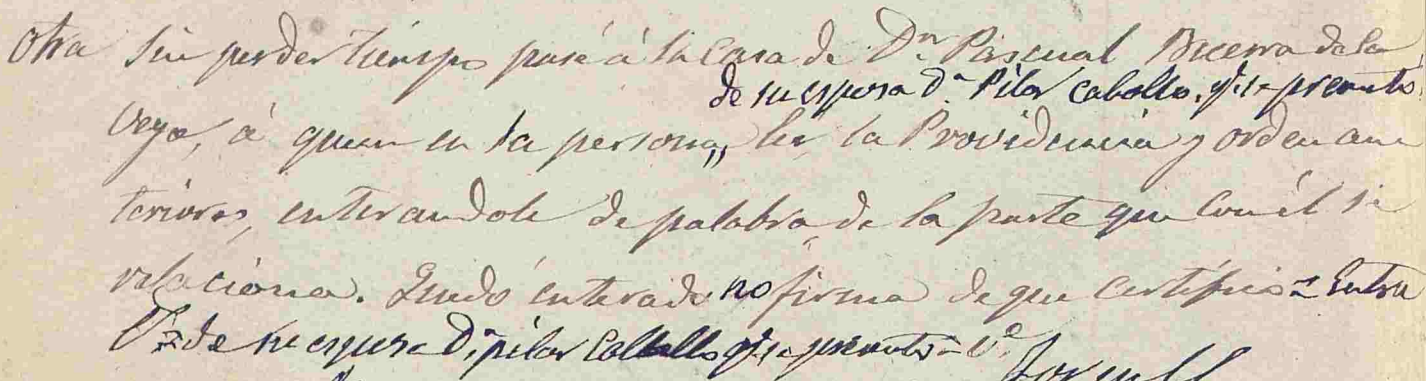 Otra Sin perder tiempo pasé á la Casa de Dn. Pascual Becerra de la
de su esposa Da. Pilar Caballo, qe. se presentó
Vega, á quien en la persona,, leí la Providencia y orden an-
teriores, enterandole de palabra de la parte que con él se
relaciona. Quedó enterado no firma de que certifico = Entre
de su esposa Da. pilar Caballo qe. se presentó = Ve.